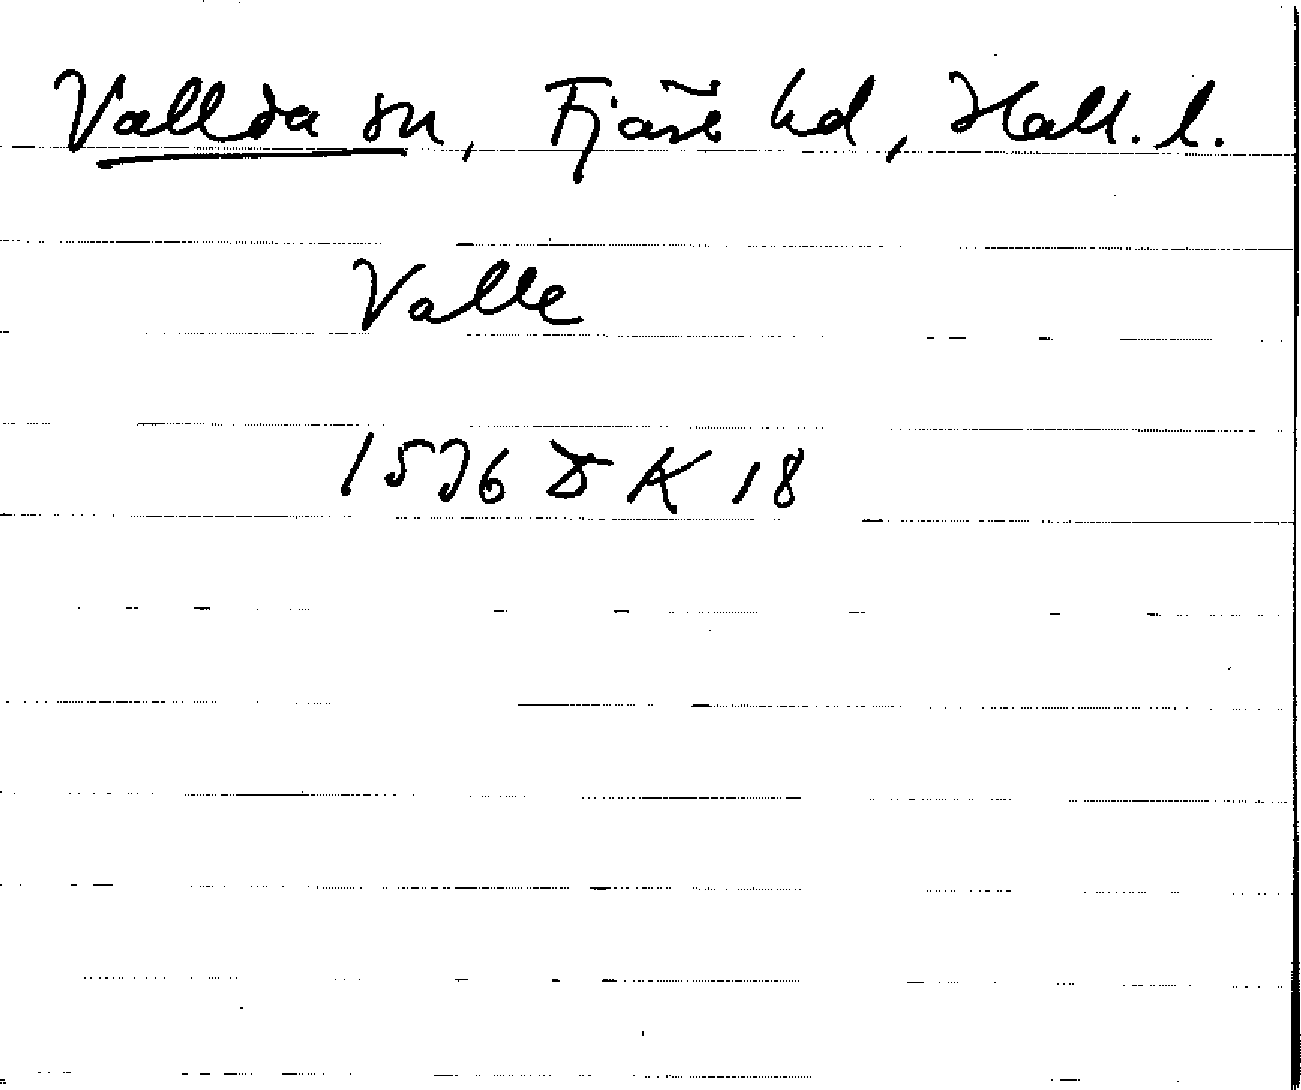 Vallda sn, Fjäre hd, Hall. l.
Valle
1576 DK 18